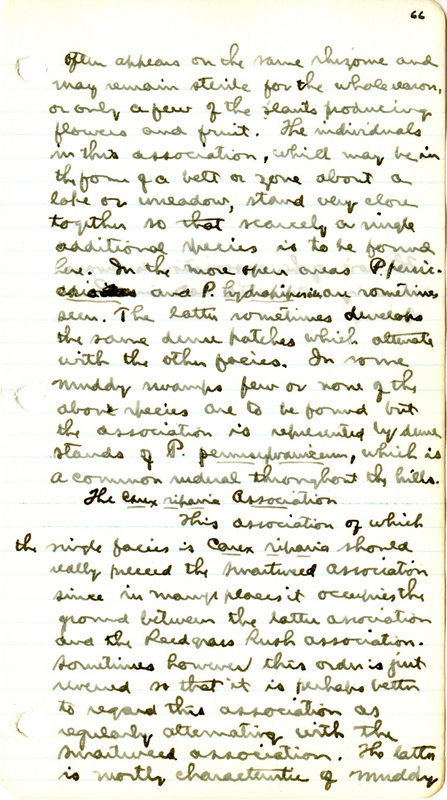 66
often appears on the same rhizome and
may remain sterile for the whole season,
or only a few of the plants producing
flowers and fruit. The individuals
in this association, which may be in
the form of a belt or zone about a
lake or meadow, stand very close
together so that scarcely a single
additional species is to be found
here. In the more open areas P. persic-
and P. hydropiperis are sometimes
seen. The latter sometimes develops
the same dense patches which alternate
with the other facies. In some
muddy swamps few or none of the
above species are to be found but
the association is represented by dense
stands of P. pennsylvanicum, which is
a common ruderal throughout the hills.
The Carex riparia Association
This association of which
the single facies is Carex riparia should
really preceed the Smartweed Association
since in many places it occupies the
ground between the latter association
and the Reedgrass Rush association.
Sometimes however this order is just
reversed so that it is perhaps better
to regard this association as
regularly alternating with the
Smartweed association. The latter
is mostly characteristic of muddy